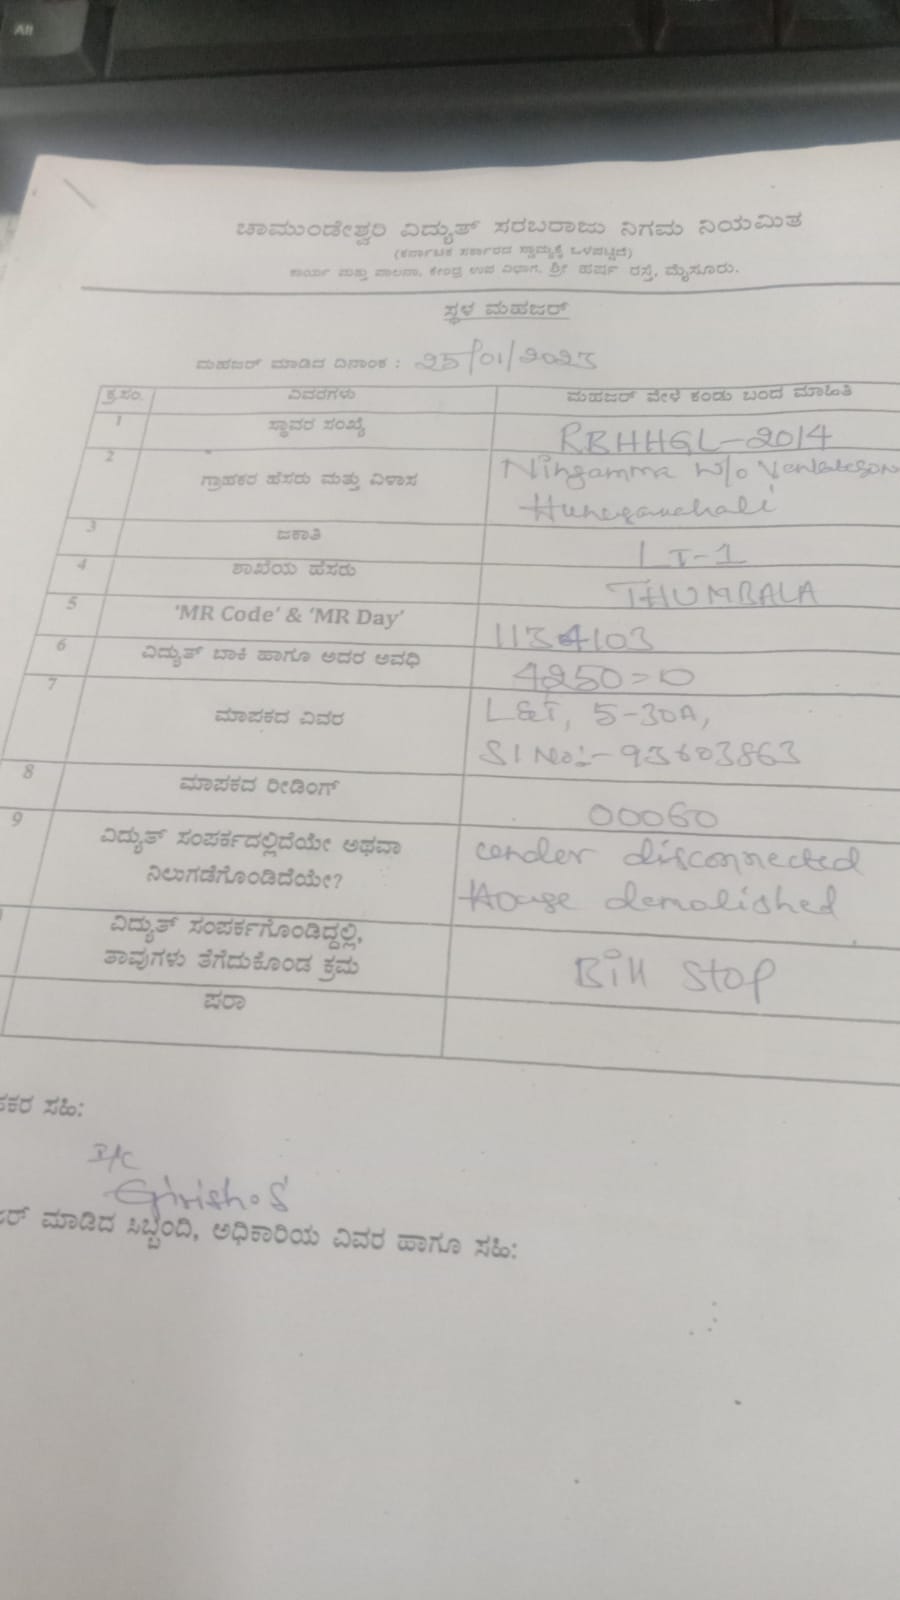 ಚಾಮುಂಡೇಶ್ವರಿ ವಿದ್ಯುತ್ ಸರಬರಾಜು ನಿಗಮ ನಿಯಮಿತ
(ಕರ್ನಾಟಕ ಸರ್ಕಾರದ ಸ್ವಾಮ್ಯಕ್ಕೆ ಒಳಪಟ್ಟಿದೆ)
ಕಾರ್ಯ ಮತ್ತು ಪಾಲನಾ, ಕೇಂದ್ರ ಉಪ ವಿಭಾಗ, ಶ್ರೀ ಹರ್ಷ ರಸ್ತೆ, ಮೈಸೂರು.
ಸ್ಥಳ ಮಹಜರ್
ಮಹಜರ್ ಮಾಡಿದ ದಿನಾಂಕ : 25/01/2023
ಕ್ರ.ಸಂ. ವಿವರಗಳು ಮಹಜರ್ ವೇಳೆ ಕಂಡು ಬಂದ ಮಾಹಿತಿ
1 ಸ್ಥಾವರ ಸಂಖ್ಯೆ RBHHGL-2014
2 ಗ್ರಾಹಕರ ಹೆಸರು ಮತ್ತು ವಿಳಾಸ Ningamma w/o
3 ಜಕಾತಿ LT-1
4 ಶಾಖೆಯ ಹೆಸರು THUMBALA
5 'MR Code' & 'MR Day' 1134103
6 ವಿದ್ಯುತ್ ಬಾಕಿ ಹಾಗೂ ಅದರ ಅವಧಿ 4250=0
7 ಮಾಪಕದ ವಿವರ L&T, 5-30A,
Sl No:-93603863
8 ಮಾಪಕದ ರೀಡಿಂಗ್ 00060
9 ವಿದ್ಯುತ್ ಸಂಪರ್ಕದಲ್ಲಿದೆಯೇ ಅಥವಾ disconnected
ನಿಲುಗಡೆಗೊಂಡಿದೆಯೇ? House demolished
ವಿದ್ಯುತ್ ಸಂಪರ್ಕಗೊಂಡಿದ್ದಲ್ಲಿ,
ತಾವುಗಳು ತೆಗೆದುಕೊಂಡ ಕ್ರಮ Bill stop
ಷರಾ
ಸಹಿ:
I/C
Girish.S
ಮಾಡಿದ ಸಿಬ್ಬಂದಿ, ಅಧಿಕಾರಿಯ ವಿವರ ಹಾಗೂ ಸಹಿ: